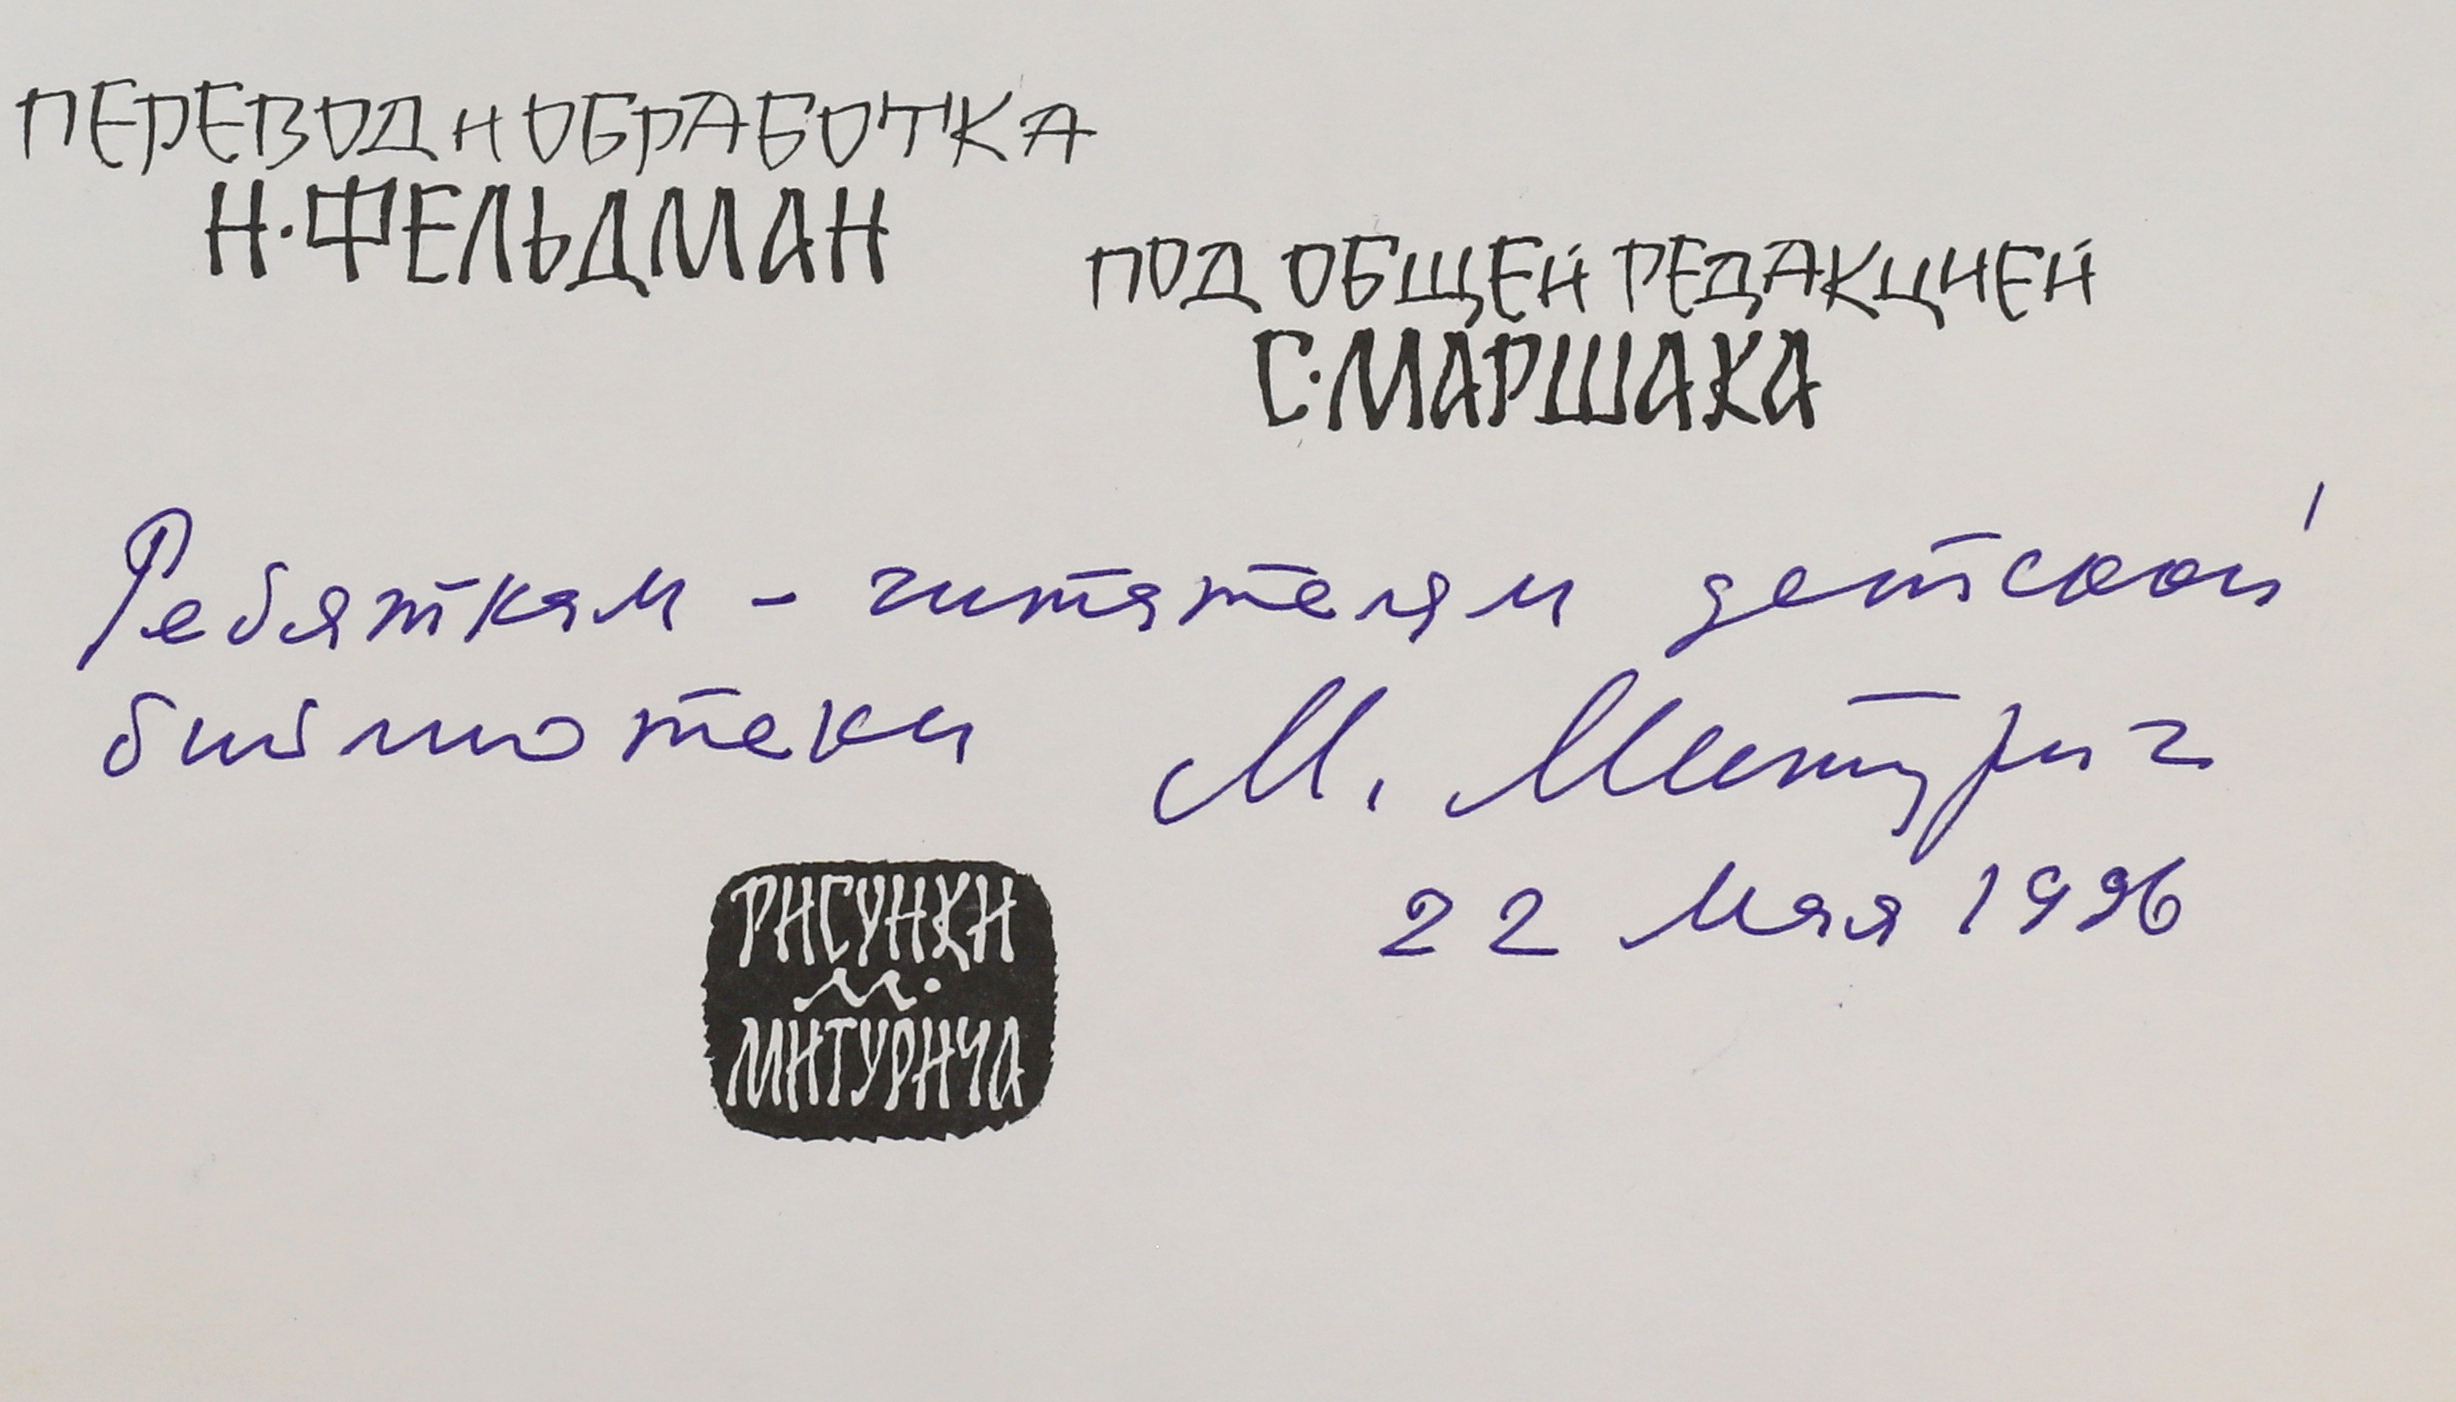 ПЕРЕВОД И ОБРАБОТКА
Н. ФЕЛЬДМАН
ПОД ОБЩЕЙ РЕДАКЦИЕЙ
С. МАРШАКА
Ребяткам - читателям детской
библиотеки М. Митурич
22 Мая 1996
РИСУНКИ
М.
МИТУРИЧА